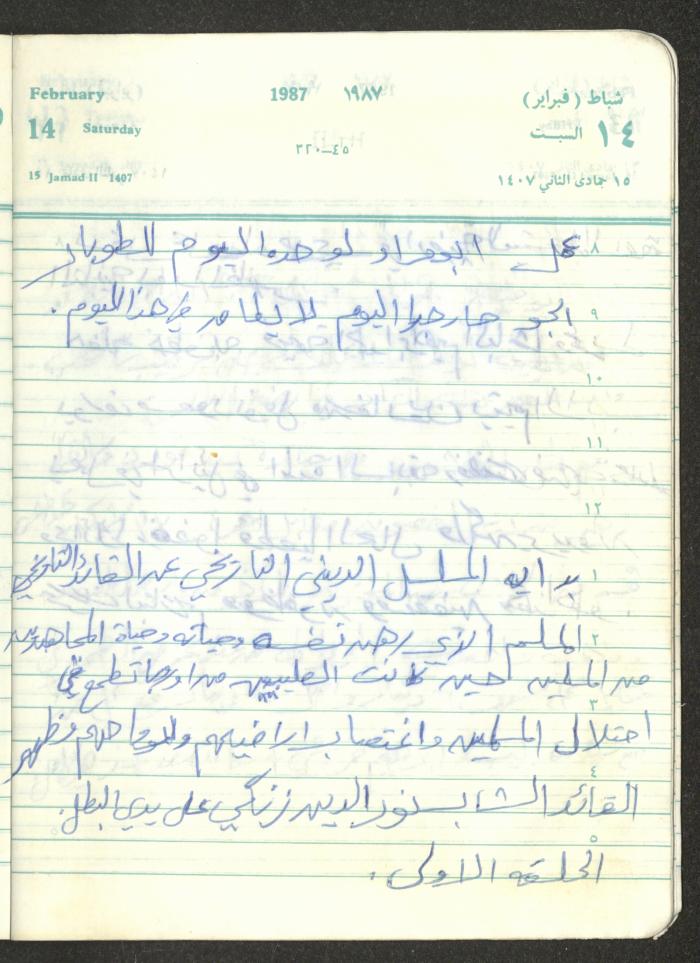 February 1987 ١٩٨٧ شباط (فبراير)
14 Saturday ٤٥–٣٢٠ السبت ١٤
15 Jamad II -1407 ١٥ جمادى الثاني ١٤٠٧
٨ عمل اليوم اليوم
٩ الجو حار هذا اليوم لا في هذا اليوم .
١٠
١١
١٢
١ بدايه المسلسل الديني التاريخي عن القائد التاريخي
٢ المسلم الذي رهن نفسه وحياته وحياة المجاهدين
من المسلمين حين كانت الصليبيين من اوربا تطمع في
٣
احتلال المسلمين واغتصاب اراضيهم فظهر
٤
القائد الشاب نور الدين زنكي على يدي البطل.
٥
الحلقه الاولى .